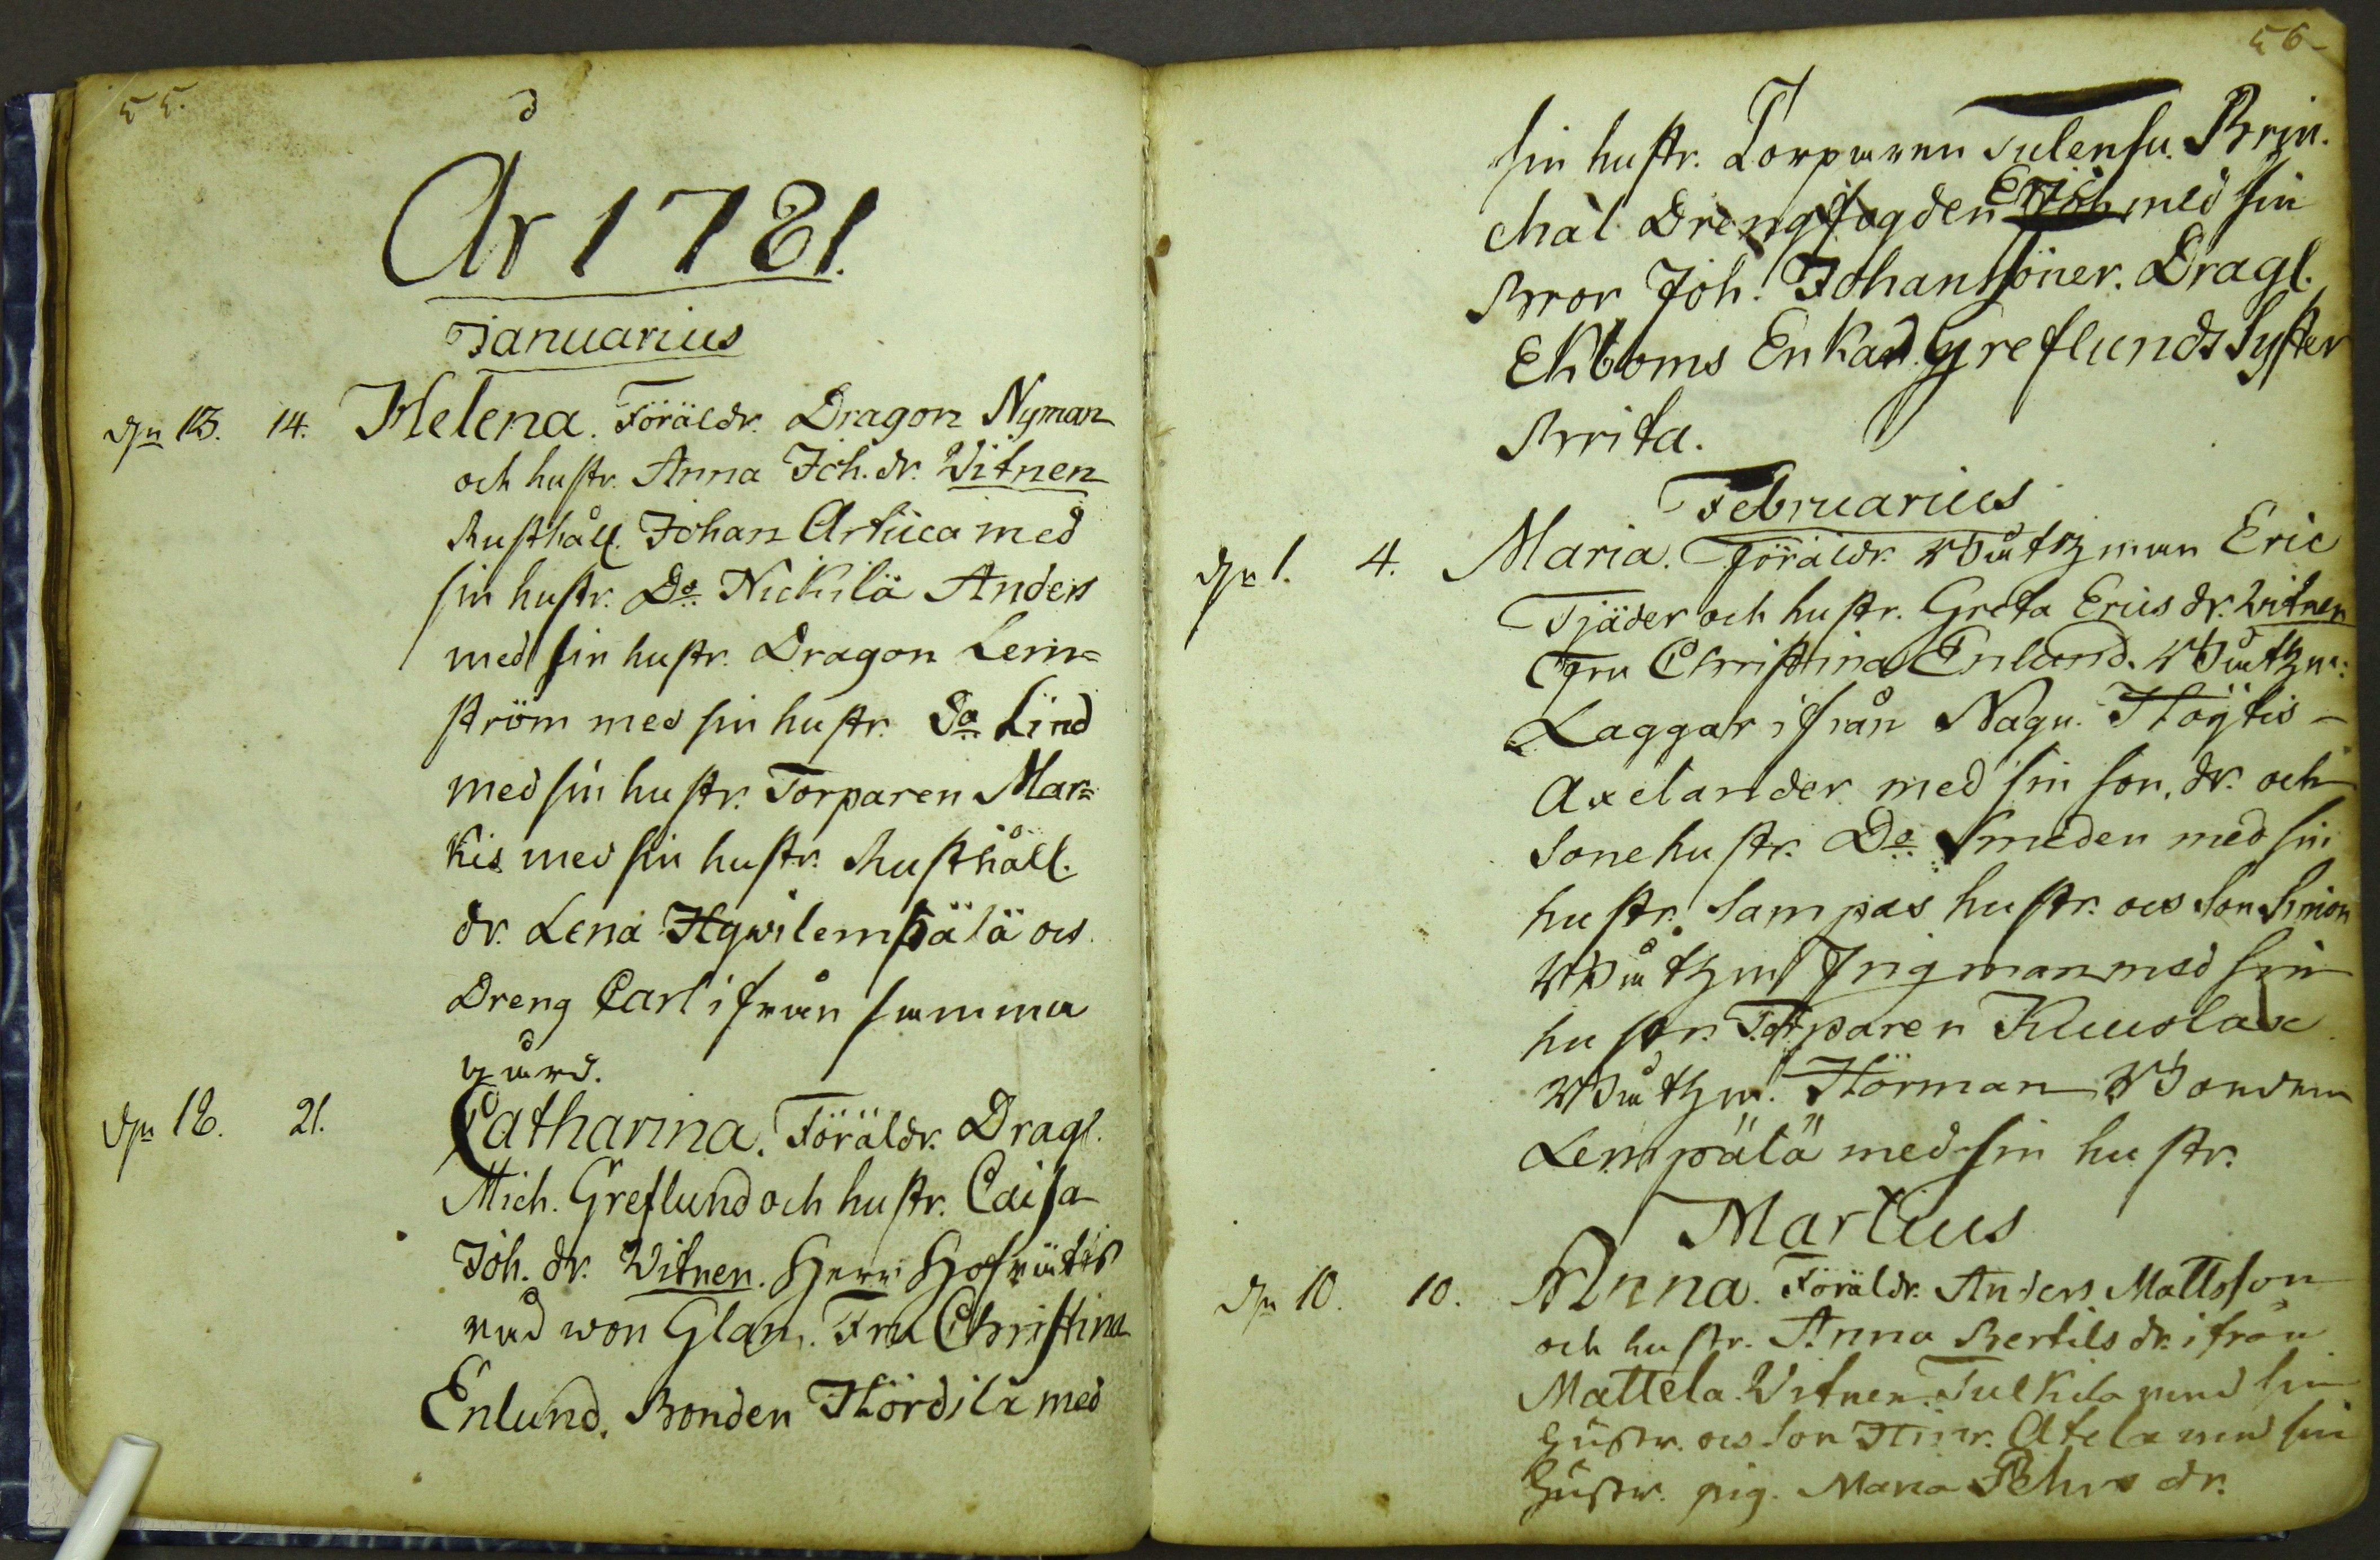 55.
År 1781.
Januarius
dn 13. 14. Helena. Föräldr. Dragon Nyman
och hustr. Anna Joh. dr. Witnen
Rusthåll. Johan Artuca med
sin hustr. Do Nickilä Anders
med sin hustr. Dragon Lem=
ström med sin hustr. Do Lind
med sin hustr. Torparen Mar=
kis med sin hustr. Rusthåll.
dr. Lena Hywilempälä os
Dreng Carl ifrån samma
gård.
dn 18. 21. Catharina. Föräldr. Drag.
Mich. Greflund och hustr. Caisa
Joh. dr. Witnen. Herr Hofrätts
råd von Glan. Fru Christina
Enlund. Bonden Hördilä med
56.
sin hustr. Torparen Tulensu. Brin.
chal Drengfogden Eric med sin
Bror Joh. Johans söner. Drag.
Ekboms Enka d. Greflunds Syster
Brita.
Februarius
dn 1. 4. Maria. Föräldr. Båtzman Eric
Tjäder och hustr. Greta Erics dr. Witnen
Fru Christina Enlund. Båtzm.
Laggar ifrån Nagu. Höytis-
Axelander med sin son, dr. och
Sonehustr. Do Smeden med sin
hustr. Sampas hustr. os Son Simon
Båtzm Ingman med sin
hustr. Torparen Kuusla
Båtzm. Hörman Bonden
Lempälä med sin hustr.
Martius
dn 10. 10. Anna. Föräldr. Anders Mattsson
och hustr. Anna Bertils dr. ifrån
Mattela. Witnen. Tulkila med sin
Hustr. os Son Hinr. Atela med sin
Hustr. pig. Maria Pehrs dr.